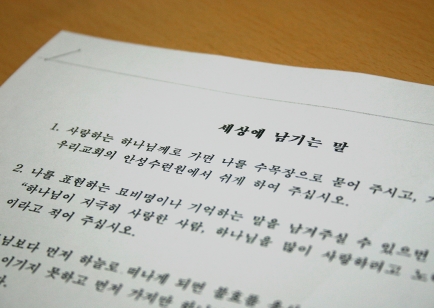 세상에 남기는 말
1. 사랑하는 하나님께로 가면 나를 수목장으로 묻어 주시고,
우리교회의 안성수련원에서 쉬게 하여 주십시오.
2. 나를 표현하는 묘비명이나 기억하는 말을 남겨주실 수 있으면
“하나님이 지극히 사랑한 사람, 하나님을 많이 사랑하려고
이라고 적어 주십시오.
먼저 하늘로 떠나게 되면 불효를
이기지 못하고 먼저 가지만